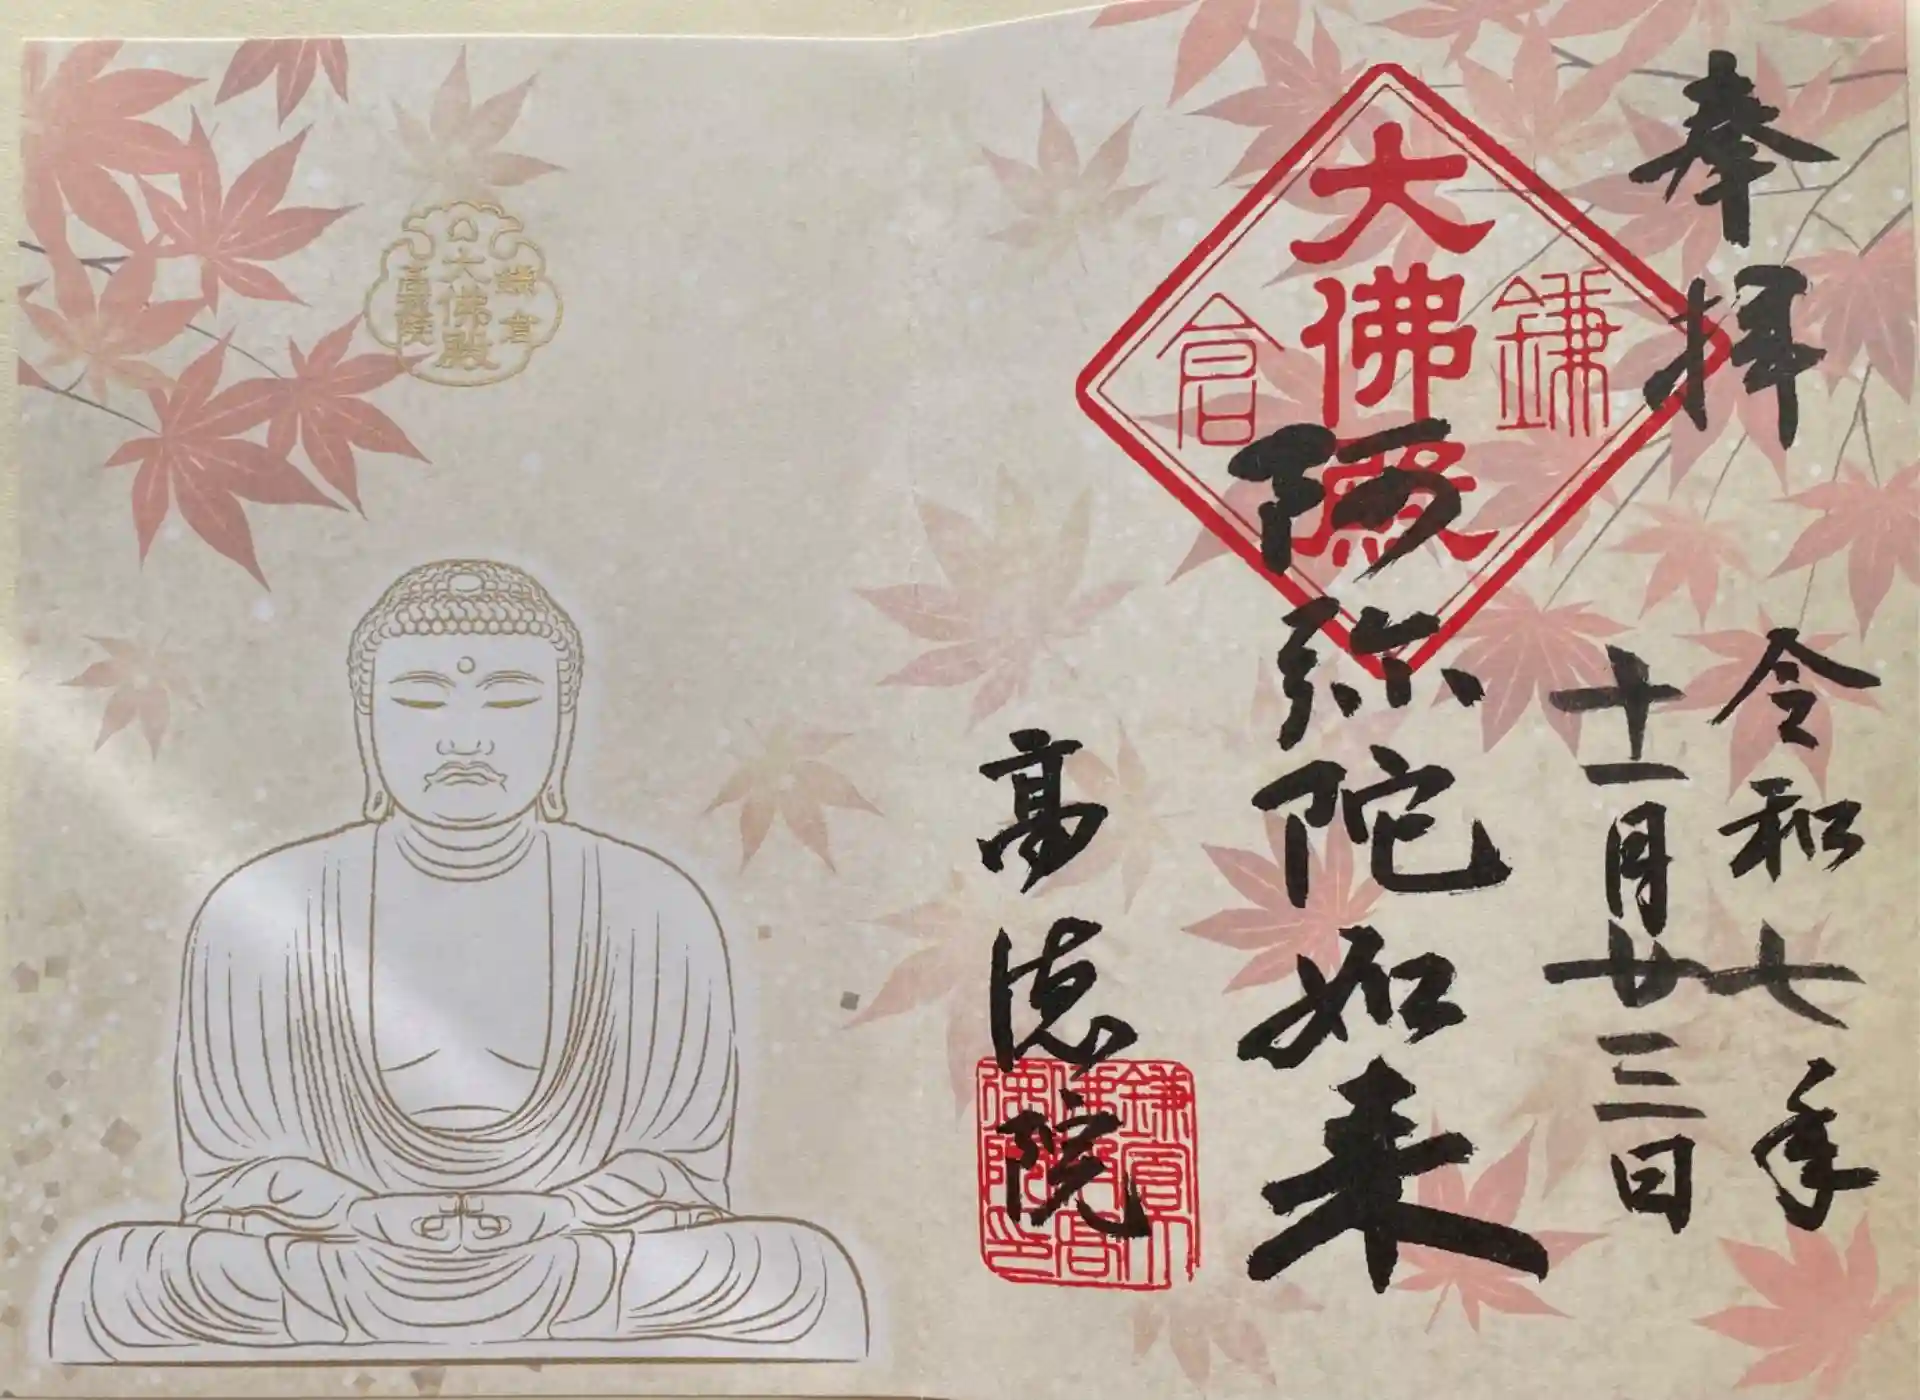 奉拝
令和七年
十一月廿三日
鎌倉
大佛殿
阿弥陀如来
高徳院
鎌倉大佛殿高徳院印
鎌倉
大佛殿
高徳院